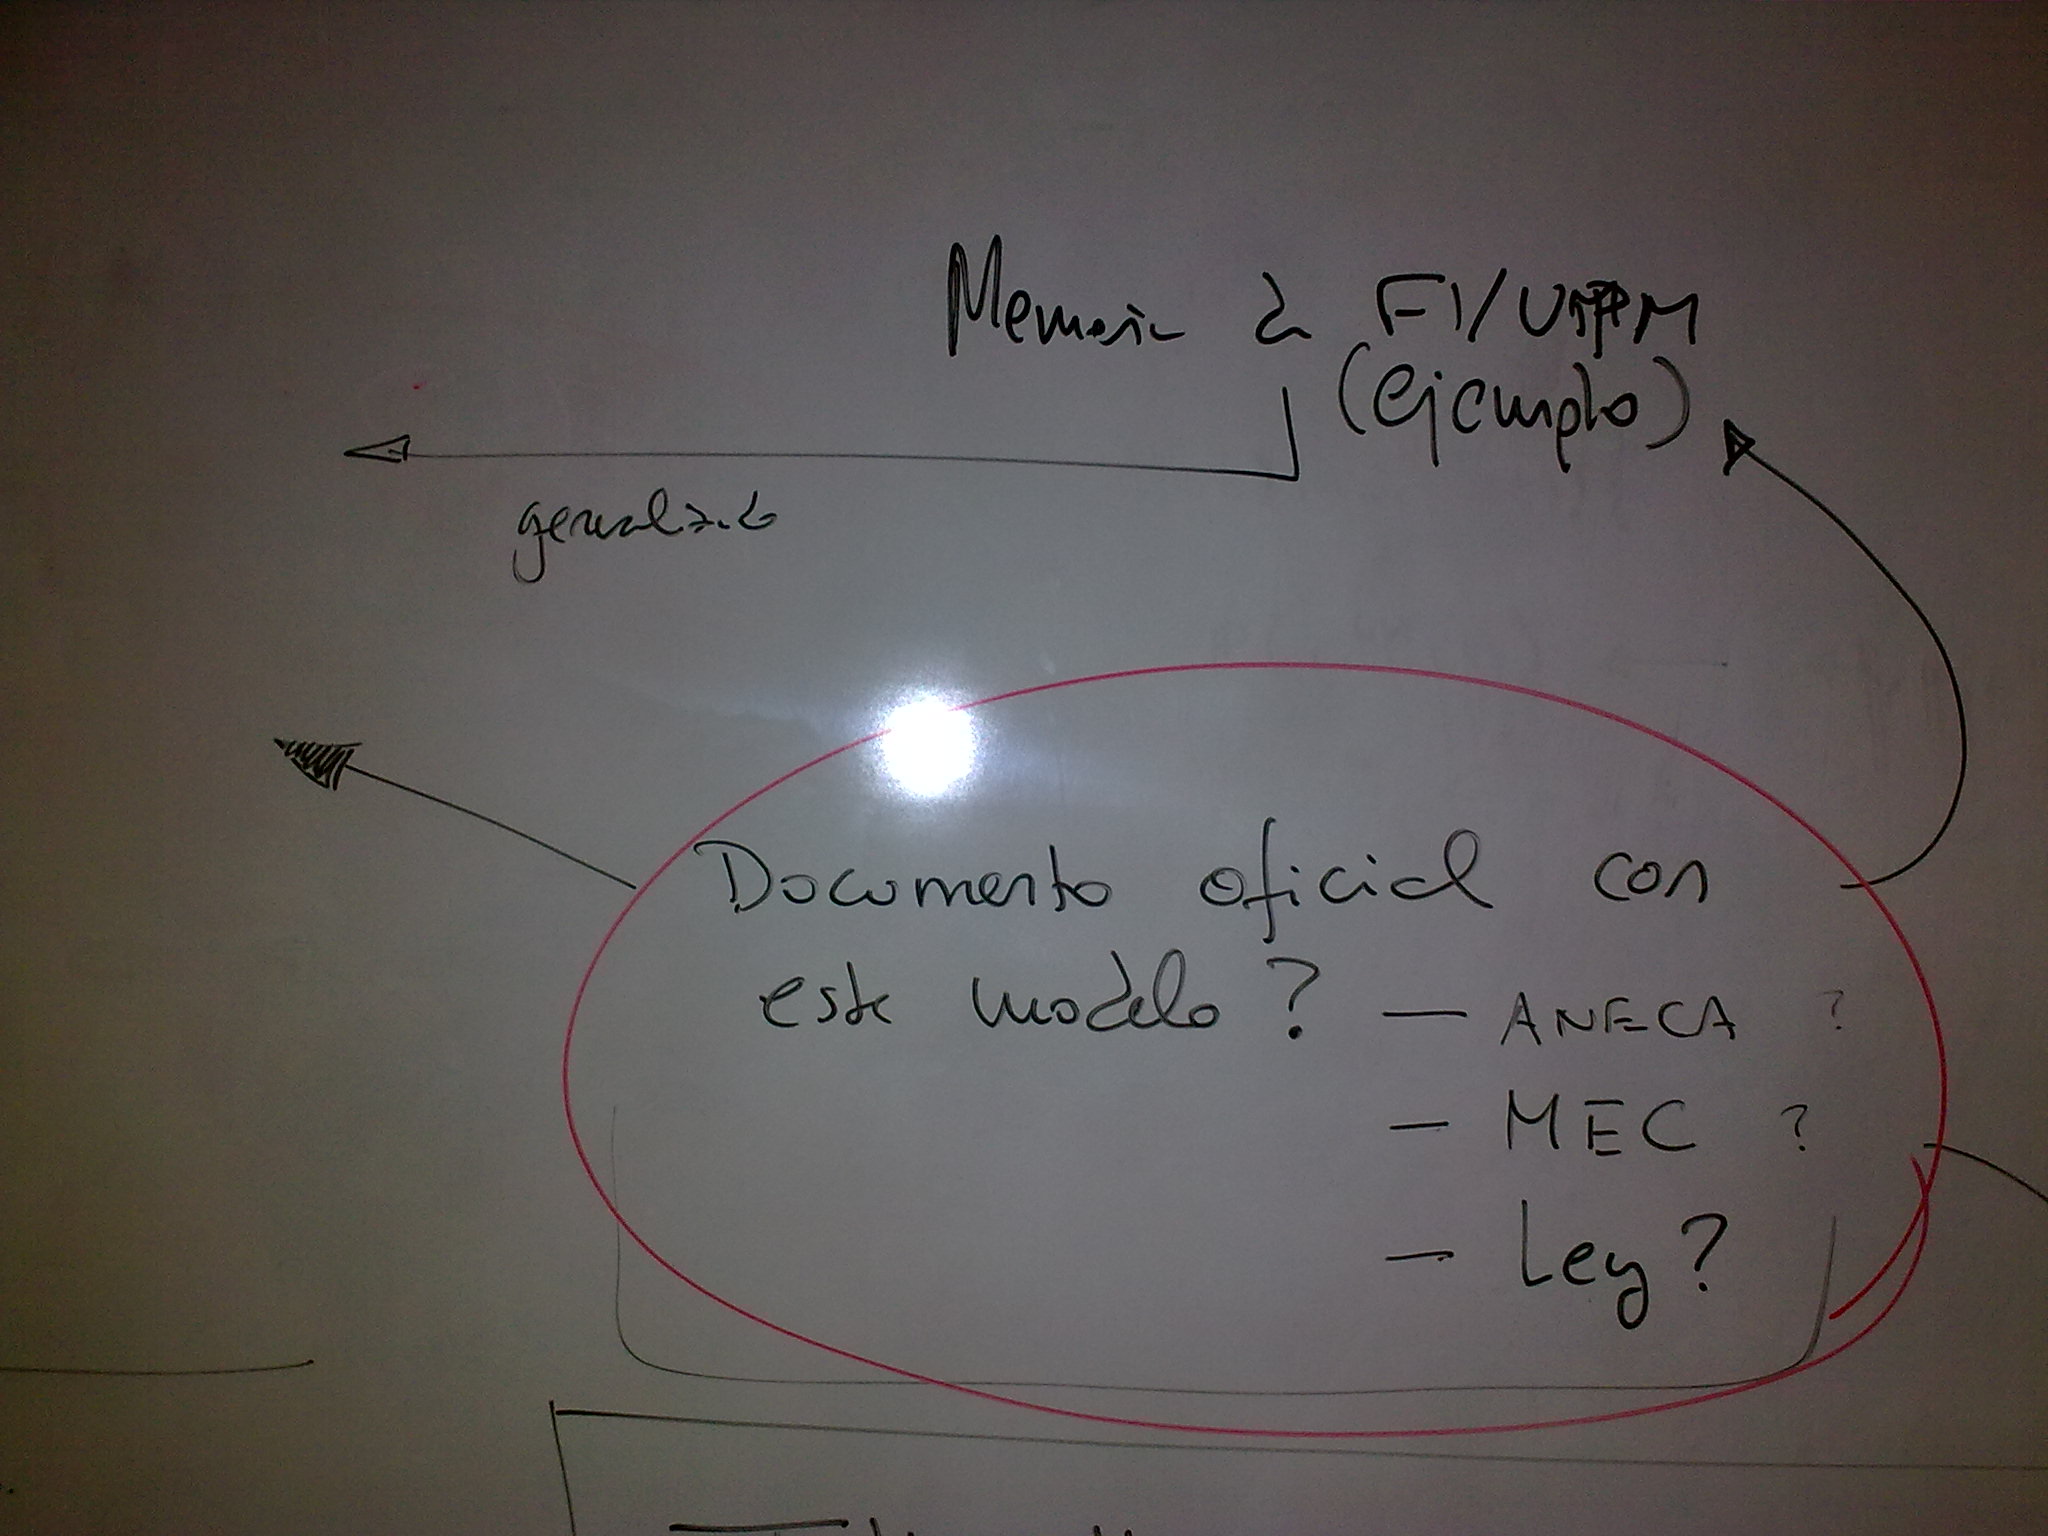 Memoria de FI/UPM
(ejemplo)
generalizado
Documento oficial con
este modelo? — ANECA ?
— MEC ?
— Ley?